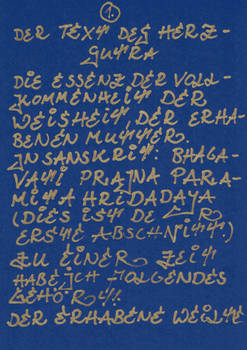 1.
DER TEXT DES HERZ-
SUTRA
DIE ESSENZ DER VOLL-
KOMMENHEIT DER
WEISHEIT, DER ERHA-
BENEN MUTTER.
IN SANSKRIT: BHAGA-
VATI PRAJNA PARA-
MITA HRIDADAYA
(DIES IST DE ER
ERSTE ABSCHNITT.)
ZU EINER ZEIT
HABE ICH FOLGENDES
GEHÖRT:
DER ERHABENE WEILTE